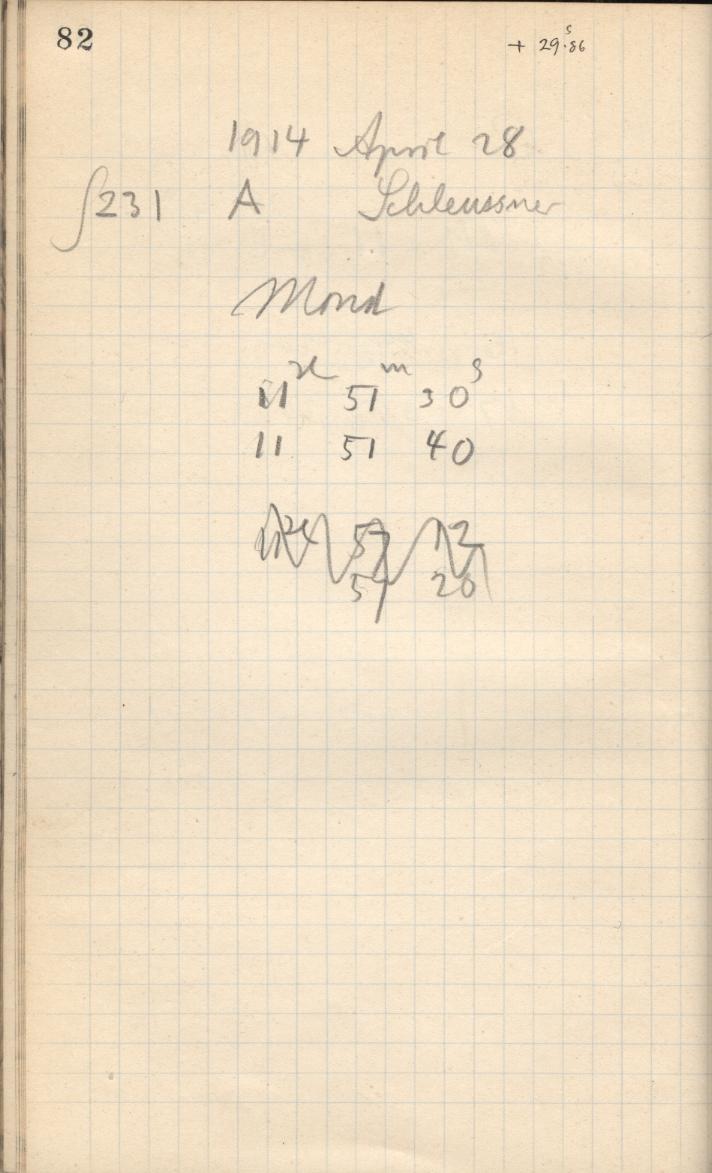 82 + 29ˢ.86
1914 April 28
∫231 A Schleussner
Mond
11ʰ 51ᵐ 30ˢ
11 51 40
57 12
57 20